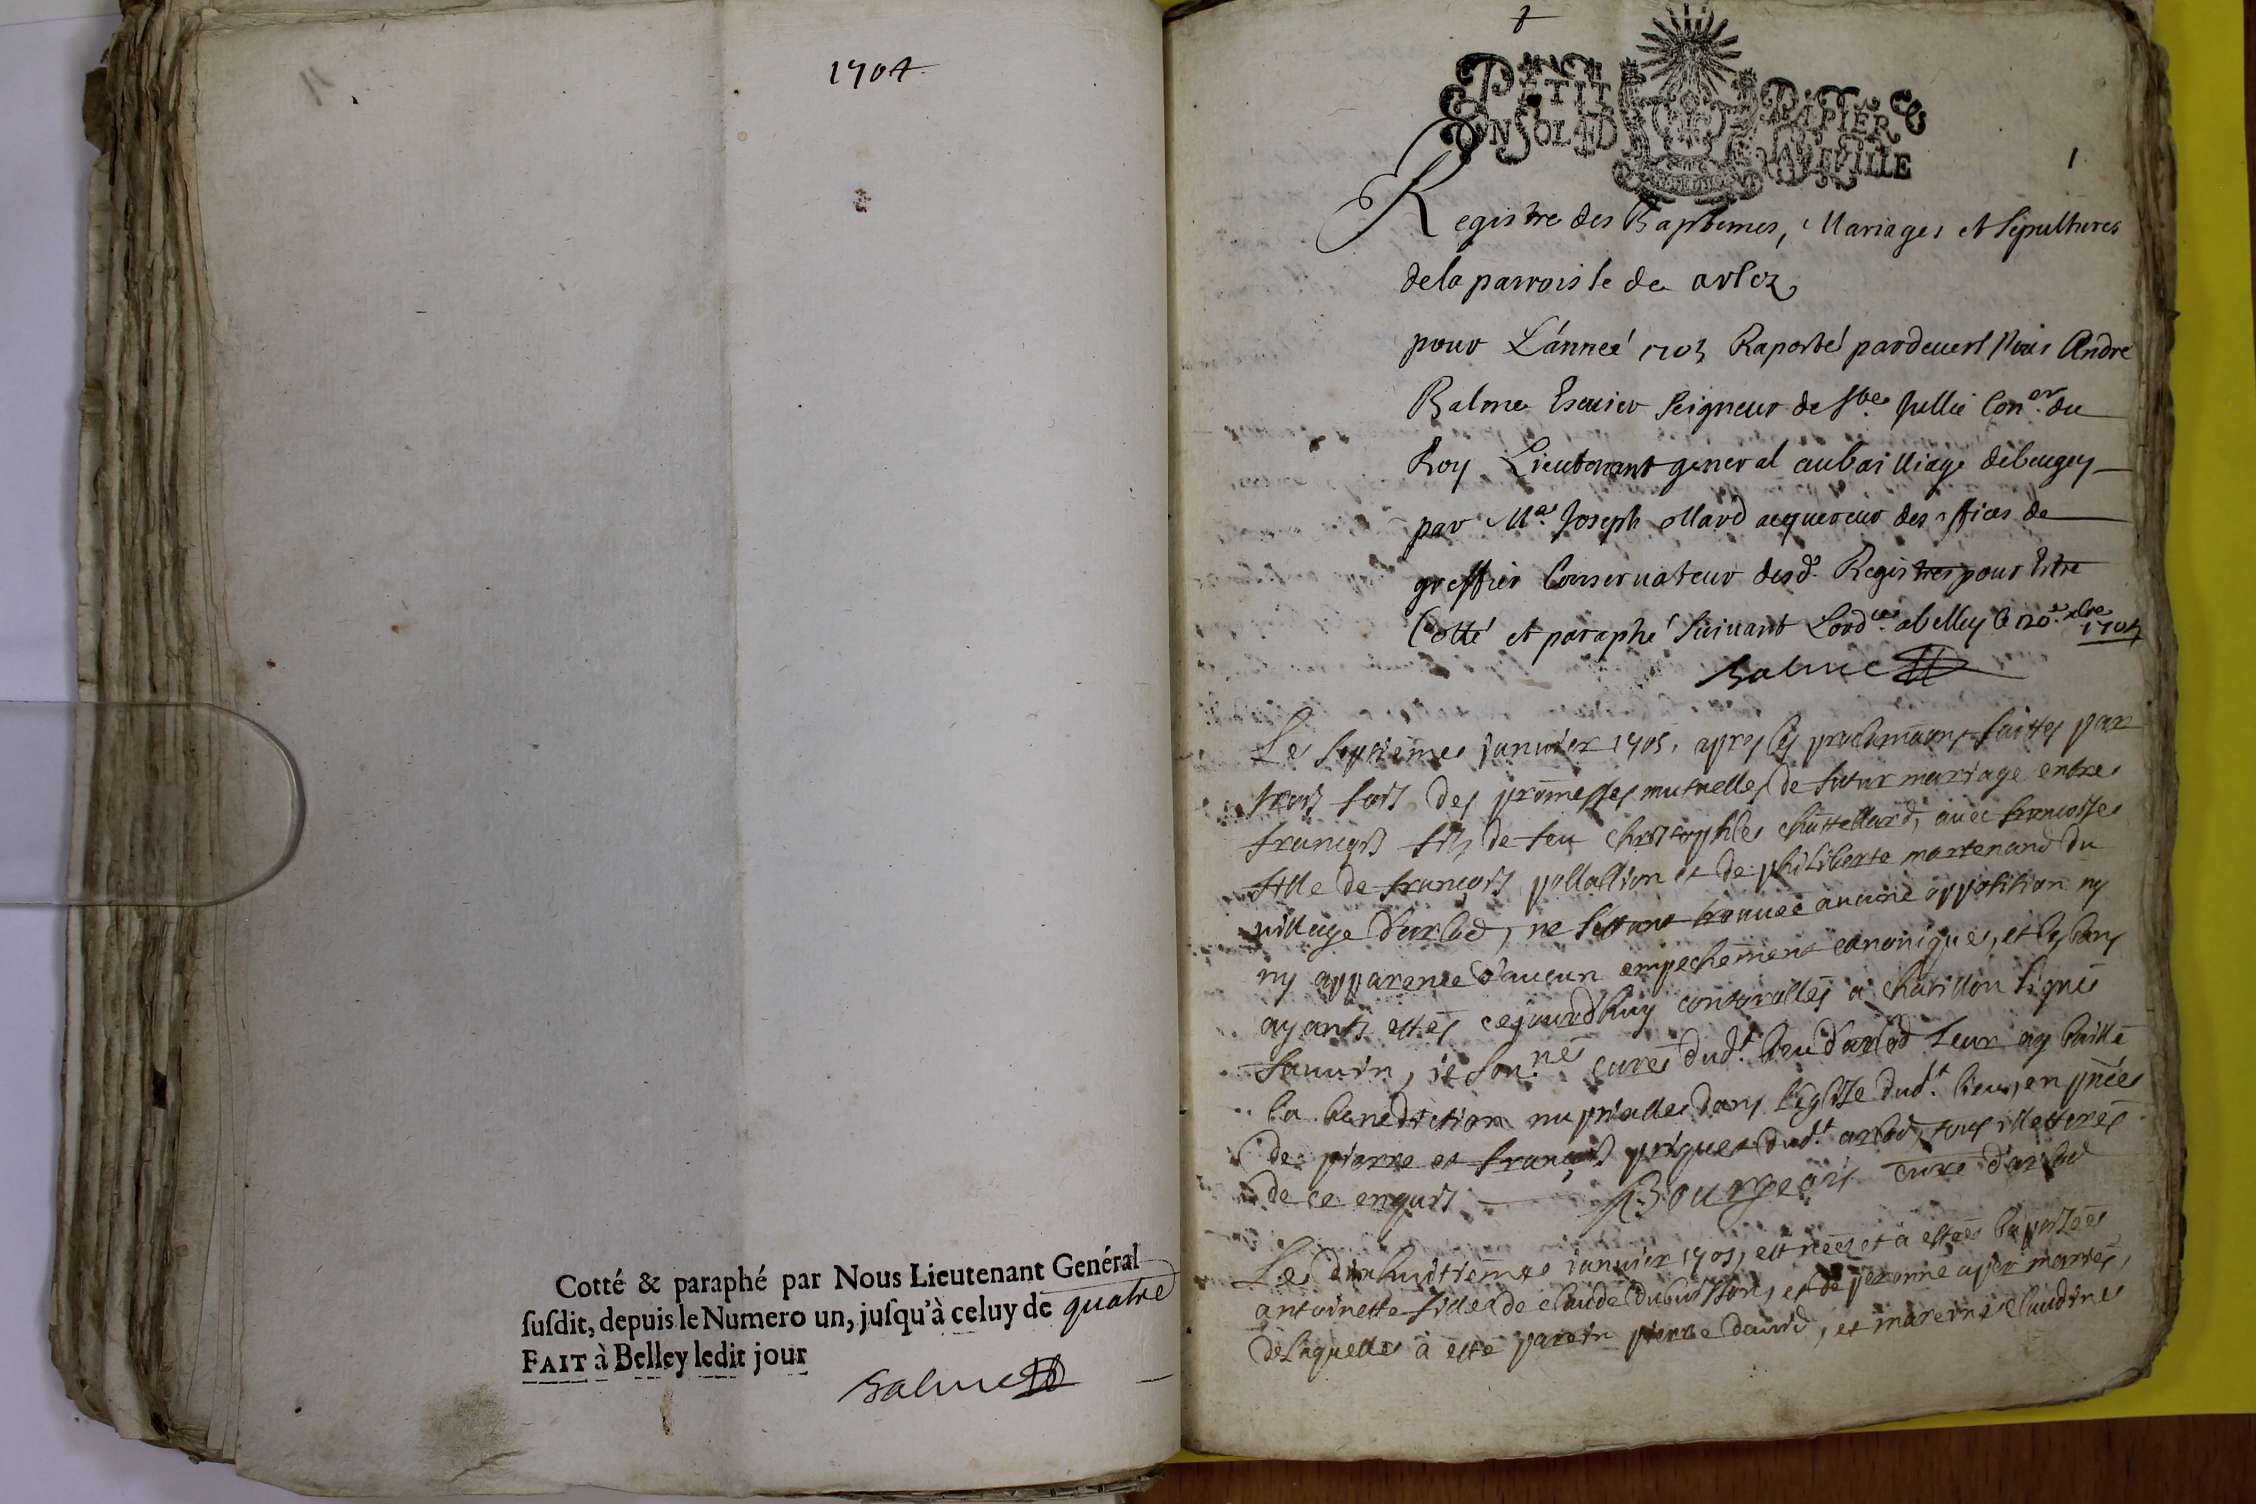 1704
Cotté & paraphé par Nous Lieutenant Général
ſuſdit, depuis le Numero un, juſqu'à celuy de quatre
FAIT à Belley ledit jour
Balme
PETIT PAPIER
1
Registre des Baptemes, Mariages et Sepultures
de la parroisse de arloz
pour L'année 1705 Raporté pardevers Nous André
Balme Escuier Seigneur de Ste Jullie Coner du
Roy Lieutenant general au bailliage de beugey
par Me Joseph ollard acquereur des offices de
greffier Conservateur desd. Registres pour Estre
Cotté et paraphé suivant Lordce a belley le 20e xbre 1704
Balme
Le septiemes janvier 1705, apres les proclmaons faittes par
trois fois des promesses mutuelles de futur mariage entres
françois fils de feu christophles chattellard, avec francoises
fille de françois pollallion et de philiberte martenand du
village d'arlod, ne sestant trouveé aucune oppotition ny
ny apparence d'aucun empechement canonique, et les bans
ayants estés cejourdhuy contorollés a chatillon signé
sauvin, je son.né curés dud.t lieu d'arlod leur ay baillé
la benediction nuptialles dans l'eglise dud.t lieu, en pnces
de pierre et françois priquet dud.t arlod, tous illetterés
de ce enquis Bourgeois curé d'arlod
Le dixhuitiemes ianvier 1705, est neés et a estées baptizeés
antoinette filles de claude dubuisson, et de peronne apper mariés,
de laquelles a esté parein pierre david, et mareines claudine